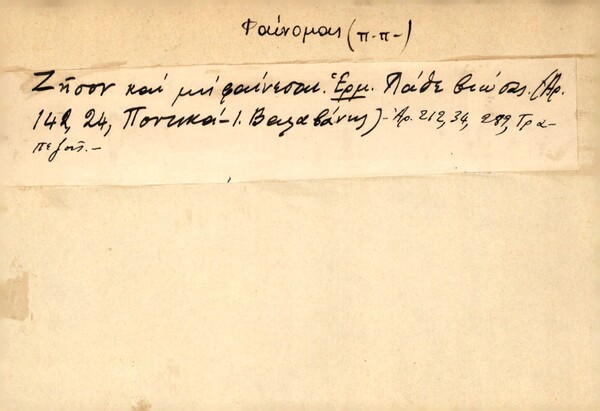 Φαίνομαι (π.π-)
Ζῆσον καί μή φαίνεσαι. Ἑρμ. Λάθε βιώσας. (Ἀρ.
149, 24, Ποντικά - Ι. Βαλαβάνης) - Ἀρ. 212, 34, 289, Τρα-
πεζοῦς. -